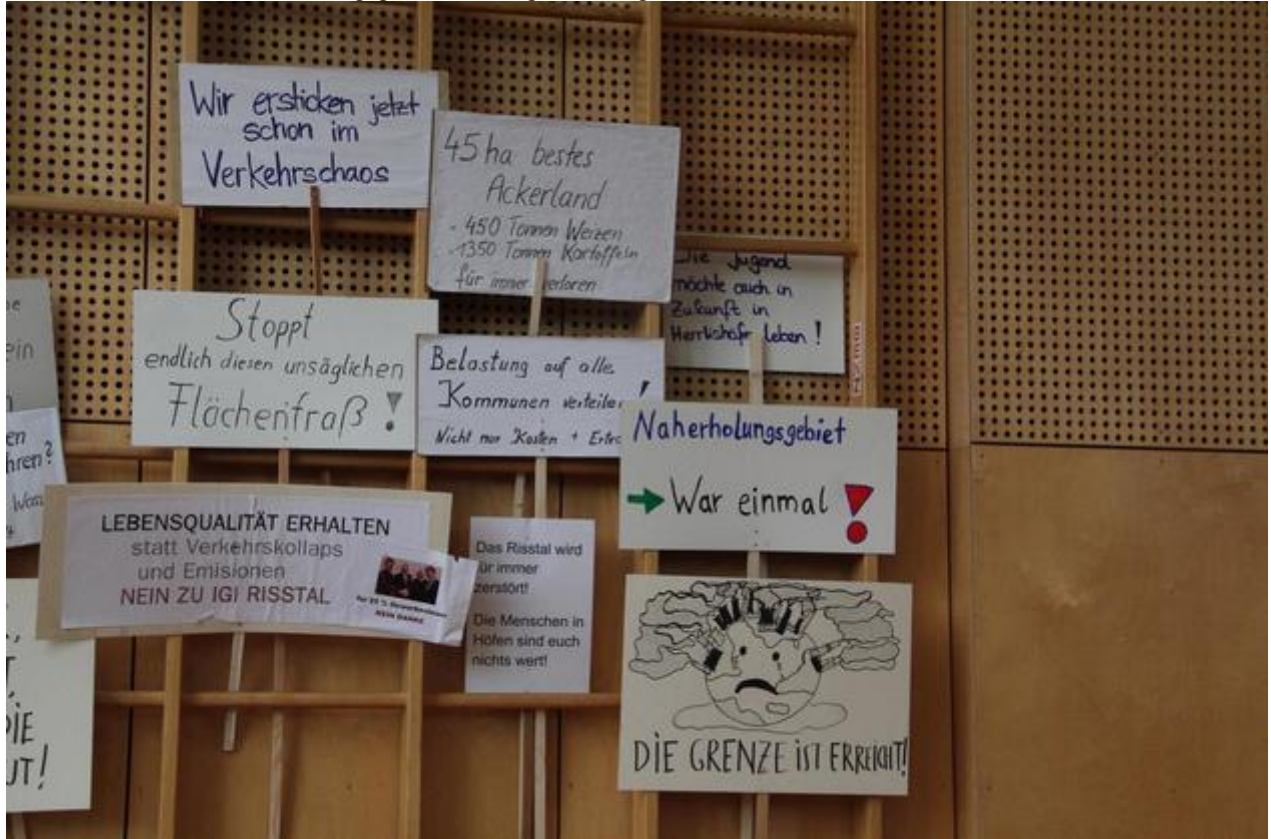 Wir ersticken jetzt
schon im
Verkehrschaos
45 ha bestes
Ackerland
- 450 Tonnen Weizen
- 1350 Tonnen Kartoffeln
für immer verloren
Die Jugend
möchte auch in
Zukunft in
leben!
Stoppt
endlich diesen unsäglichen
Flächenfraß!
Belastung auf alle
Kommunen verteilen!
Nicht nur Kosten +
Naherholungsgebiet
→ War einmal!
ein
en
hren?
LEBENSQUALITÄT ERHALTEN
statt Verkehrskollaps
und Emisionen
NEIN ZU IGI RISSTAL
NEIN DANKE
Das Risstal wird
für immer
zerstört!
Die Menschen in
Höfen sind euch
nichts wert!
DIE
UT!
DIE GRENZE iST ERREICHT!